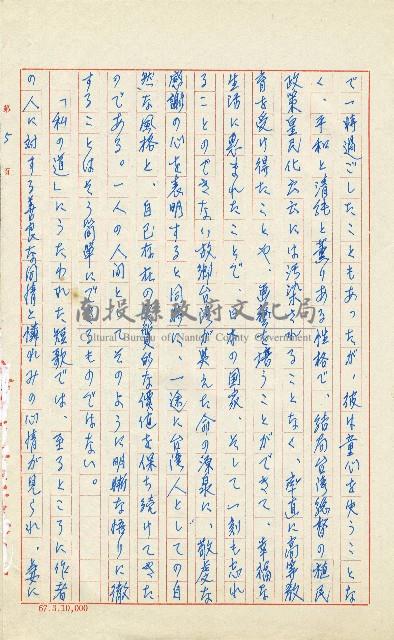 で一時過ごしたこともあったが、彼は童心を失うことな
く、平和と清純と薫りある性格で、結局台湾総督の植民
政策皇民化云々には汚染されることなく、率直に高等教
育を受け得たことや、
培うことができて、幸福な
生活に恵まれたことで、日本の国家、そして一刻も忘れ
ることのできない故郷台湾が与えた命の源泉に、敬虔な
感謝の心を表明すると同時に、一途に台湾人としての自
然な風格と、自己存在の
的な価値を保ち続けてきた
のである。一人の人間としてそのように明晰な悟りに徹
することはそう簡単にできるものではない。
「私の道」にうたわれた短歌では、至るところに作者
の人に対する善良な同情と憐れみの心情が見られ、妻に
第 5 頁
南投縣政府文化局
Cultural Bureau of Nantou County Government
67.3.10,000